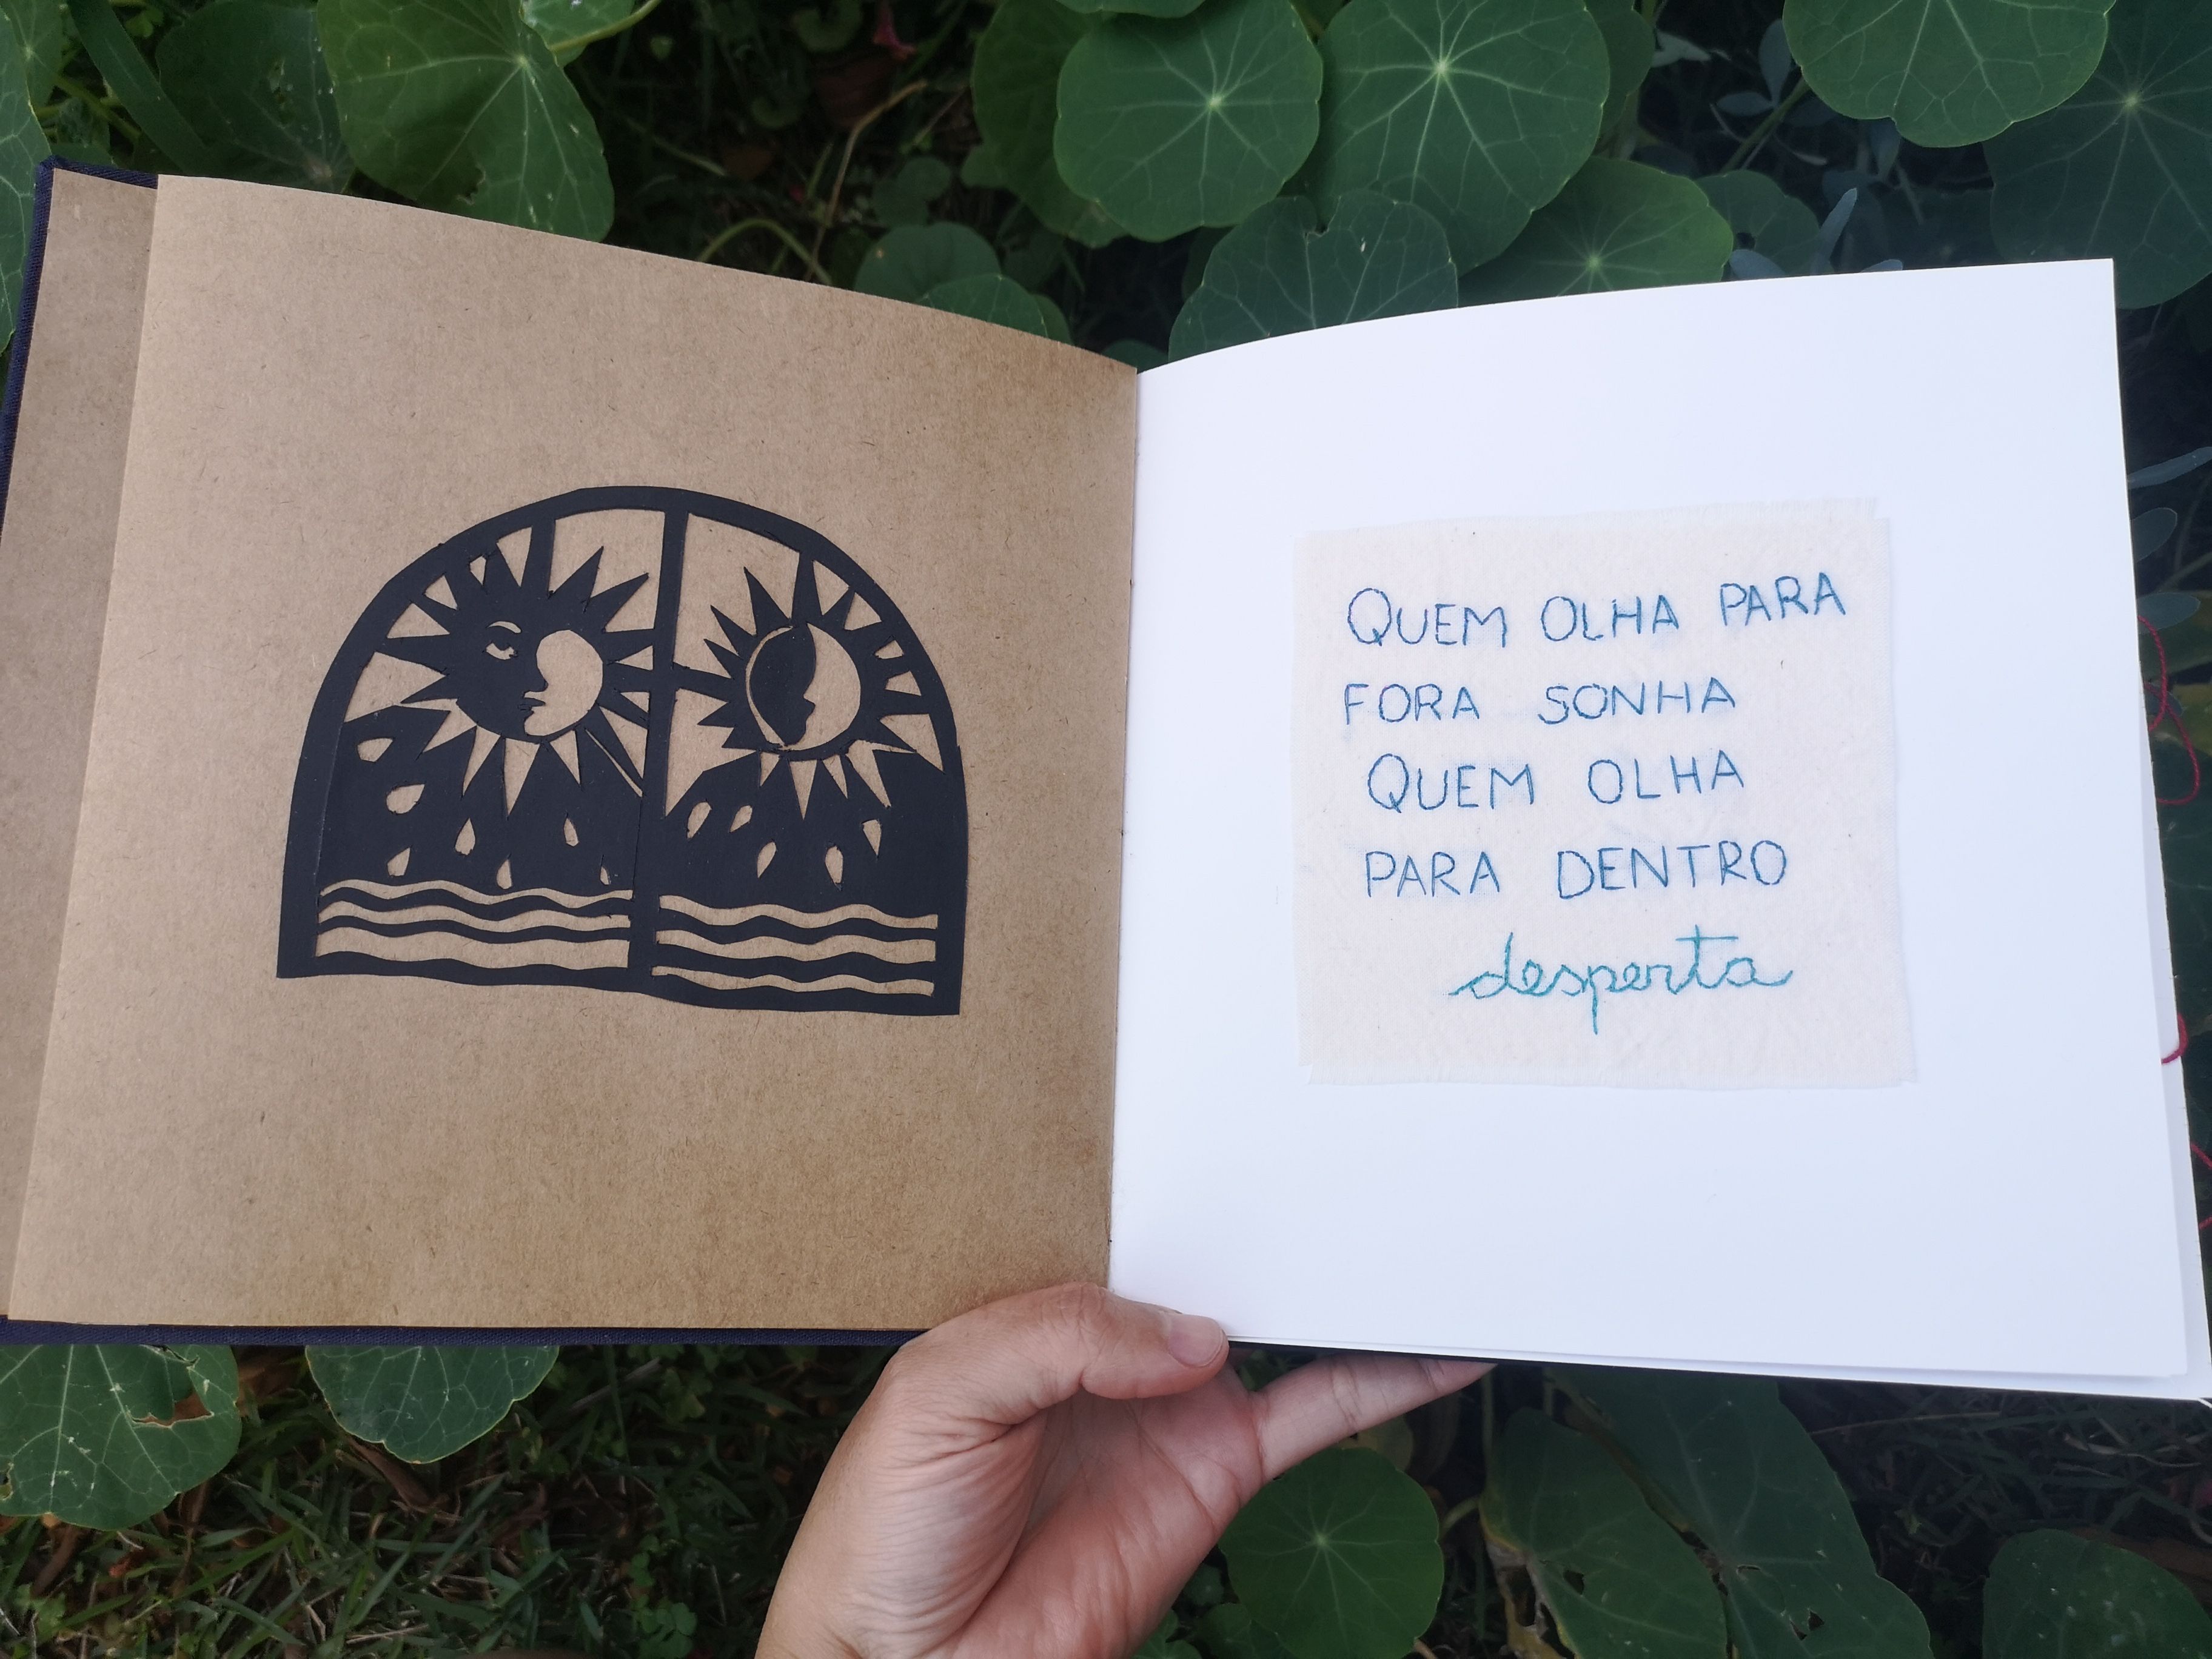 QUEM OLHA PARA
FORA SONHA
QUEM OLHA
PARA DENTRO
desperta